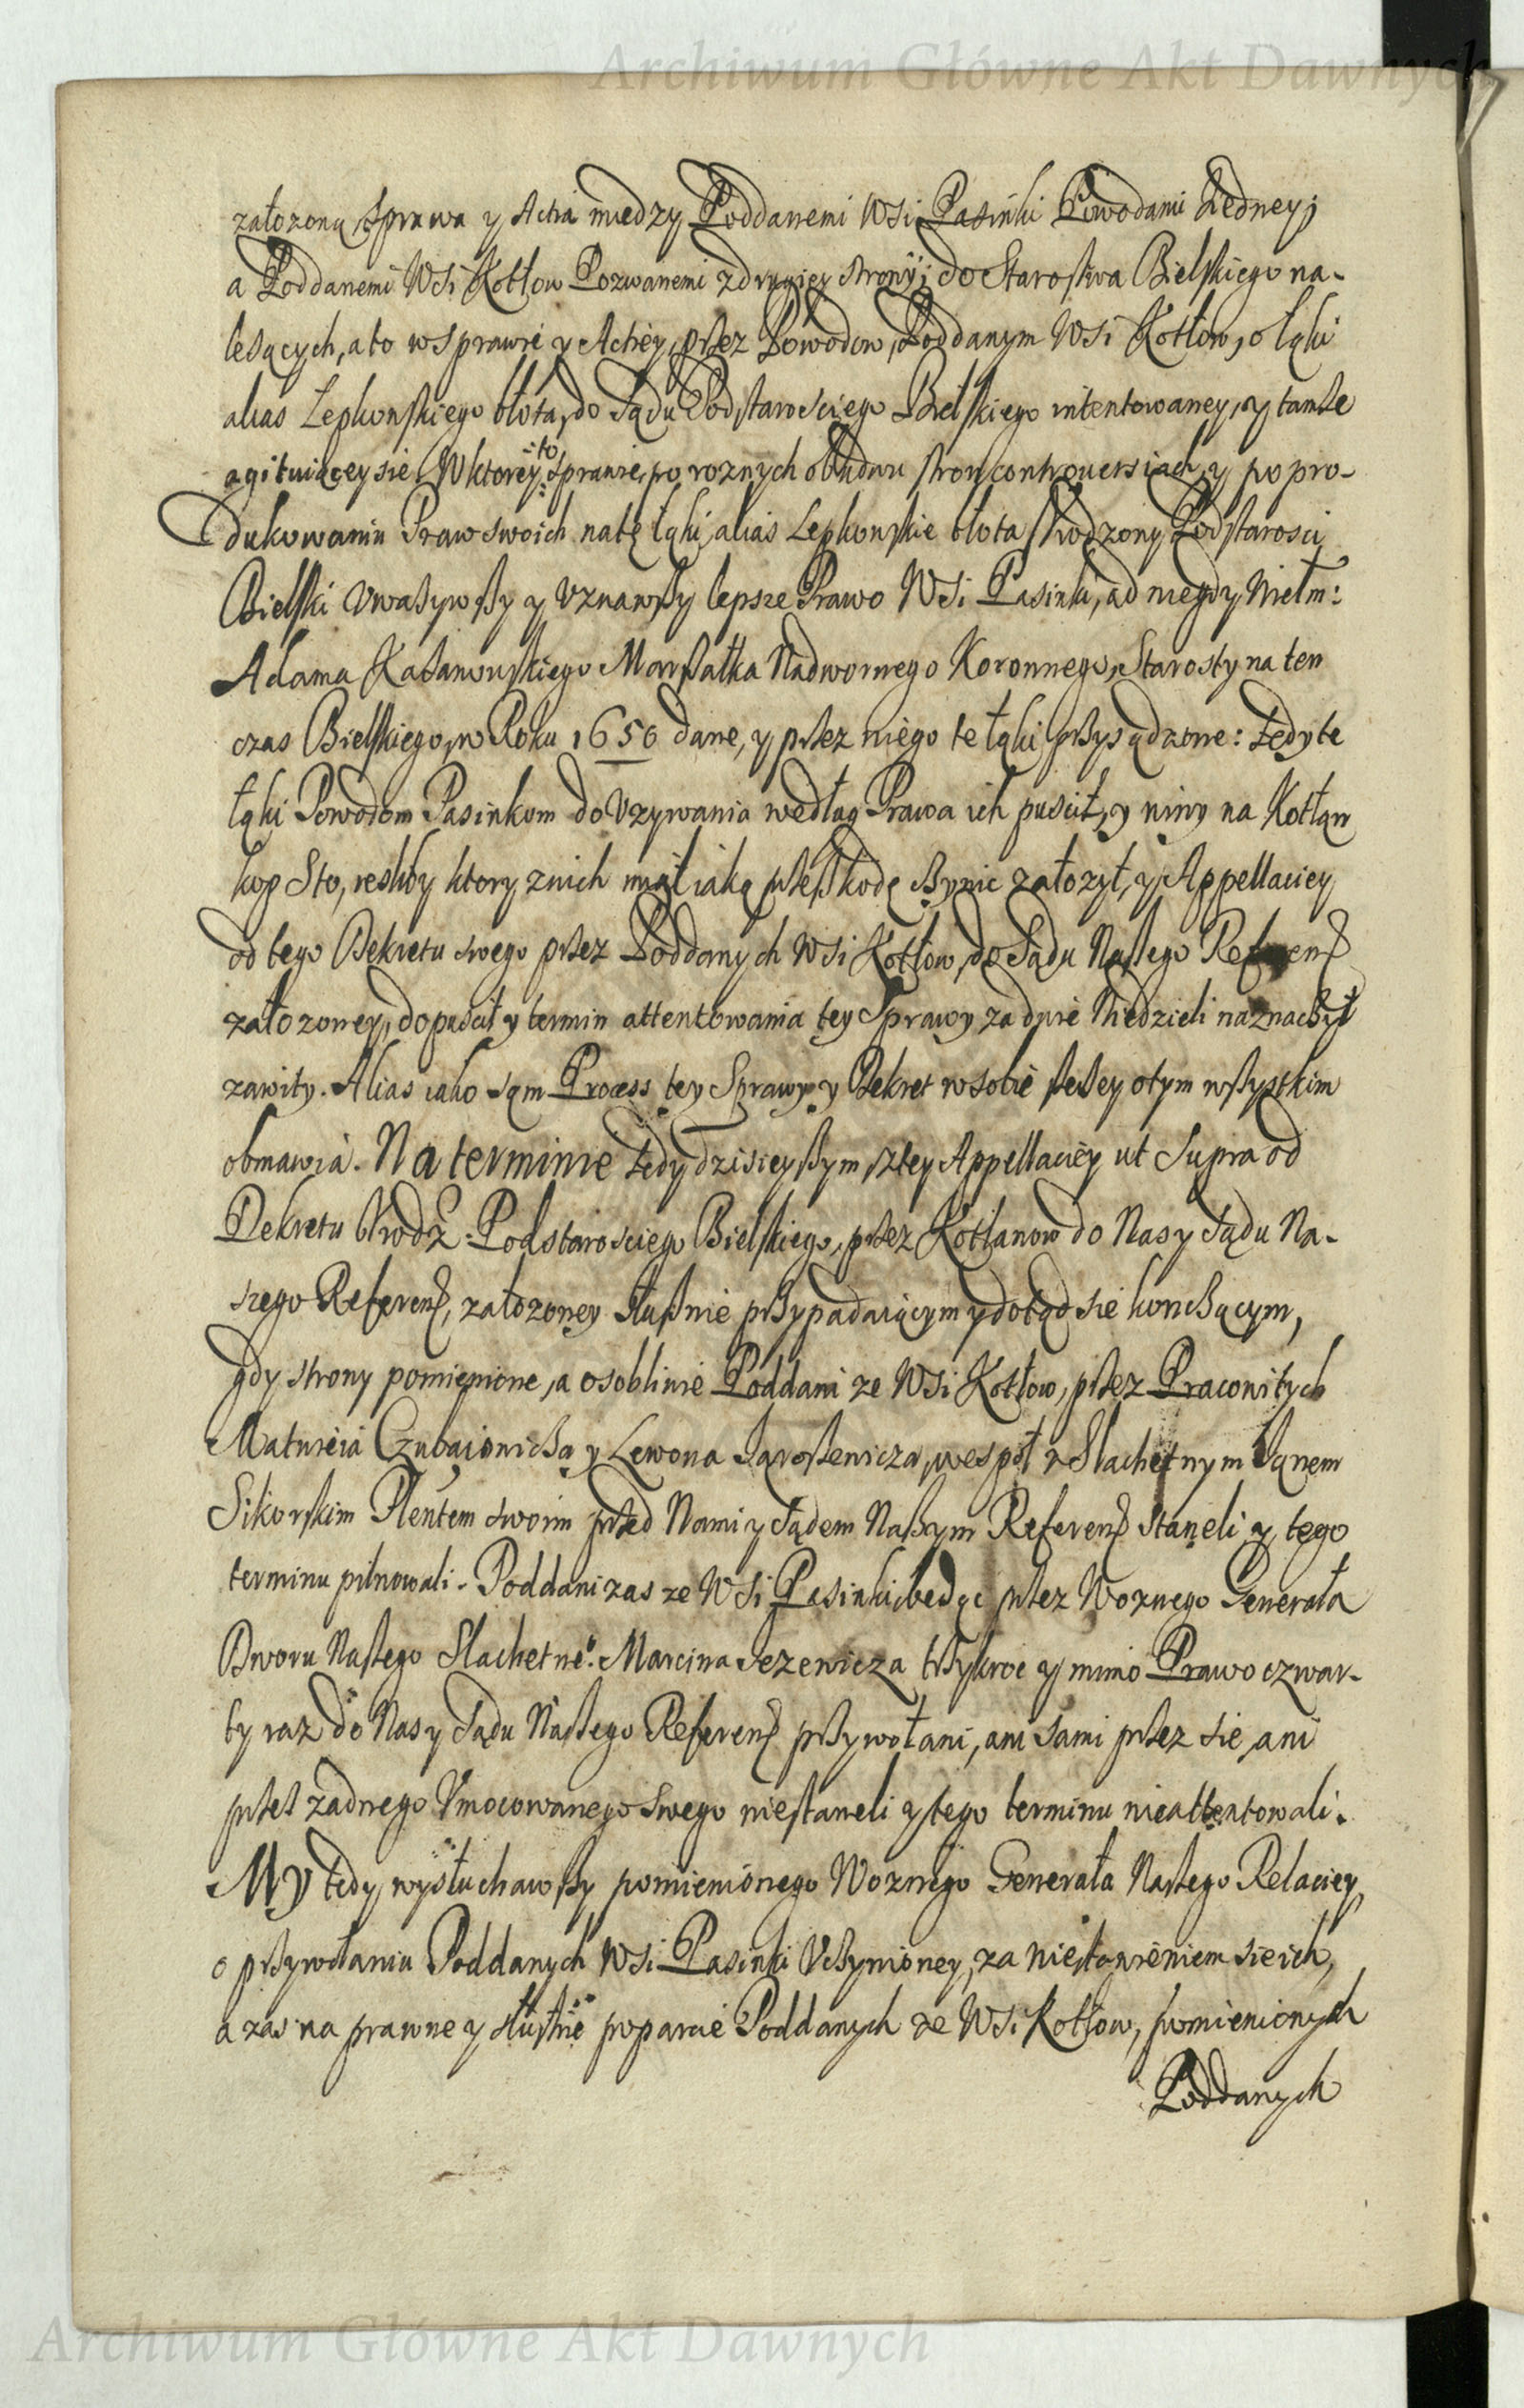 Archiwum Główne Akt Dawnych
założoną Sprawa y Actia między Poddanemi Wsi Pasinki Powodami z Jedney;
a Poddanemi Wsi Kotłow Pozwanemi z drugiey strony; do Starostwa Bielskiego na-
leżących, a to w sprawie y Actiey, przez Powodow, Poddanym Wsi Kotłow, o łąki
alias Lepkowskiego błota, do Sądu Podstarosciego Bielskiego intentowaney, y tamże
agituiącey sie. W ktorey to Sprawie, po roznych obudwu stron controuersiach, y po pro-
dukowaniu Praw swoich na tę łąki, alias Lepkowskie błota Urodzony Podstarosci
Bielski vważywszy y vznawszy lepsze Prawo Wsi Pasinki, od niegdy Wielm:
Adama Kazanowskiego Marszałka Nadwornego Koronnego, Starosty na ten
czas Bielskiego, w Roku 1650 dane, y przez niego te łąki przysądzone: Tedy te
łąki Powodom Pasinkom do Vzywania według Prawa ich puscił, y winy na Kotłan
kop Sto, iesliby ktory z nich miał iaką przeszkodę czynic założył, y Appellaciey
od tego Dekretu swego przez Poddanych Wsi Kotłow, do Sądu Naszego Referen
założoney, dopuscił y termin attentowania tey Sprawy za dwie Niedzieli naznaczył
zawity. Alias iako sam Process tey Sprawy y Dekret w sobie szerzey o tym wszystkim
obmawia. Na terminie tedy dzisieyszym z tey Appellaciey ut supra od
Dekretu Urodz: Podstarosciego Bielskiego, przez Kotłanow do Nas y Sądu Na-
szego Referen, założoney słusznie przypadaiącym y dotąd sie konczącym,
gdy strony pomienione, a osobliwie Poddani ze Wsi Kotłow, przez Pracowitych
Matwieia Czubaiowicza y Lewona Jaroszewicza, wespoł z Slachetnym Janem
Sikorskim Plentem swoim przed Nami y Sądem Naszym Referen staneli, y tego
terminu pilnowali. Poddani zas ze Wsi Pasinki, będąc przez Woznego Generała
Dworu Naszego Slachetne. Marcina Jezewicza trzykroc y mimo Prawo czwar-
ty raz do Nas y Sądu Naszego Referen przywołani, ani sami przez sie, ani
przez zadnego Vmocowanego swego niestaneli y tego terminu nieattentowali.
My tedy, wysłuchawszy pomienionego Woznego Generała Naszego Relaciey
o przywołaniu Poddanych Wsi Pasinki Vczynioney, za niestawieniem sie ich,
a zas na prawne y słuszne poparcie Poddanych ze Wsi Kotłow, pomienionych
Poddanych
Archiwum Główne Akt Dawnych